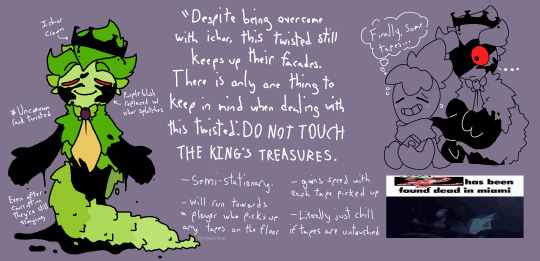 Ichor
Crown
"Despite being overcome
with ichor, this twisted still
keeps up their facades.
There is only one thing to
keep in mind when dealing with
this twisted: DO NOT TOUCH
THE KING'S TREASURES.
*Uncommon
Purple blush
replaced w/
ichor splotches
Even after
corruption
They're still
slinging
~Semi-stationary.
~will run towards
a player who picks up
any tapes on the floor
~gains speed with
each tape picked up
~Literally just chill
if tapes are untouched
Finally, some
tapes...
...
has been
found dead in miami